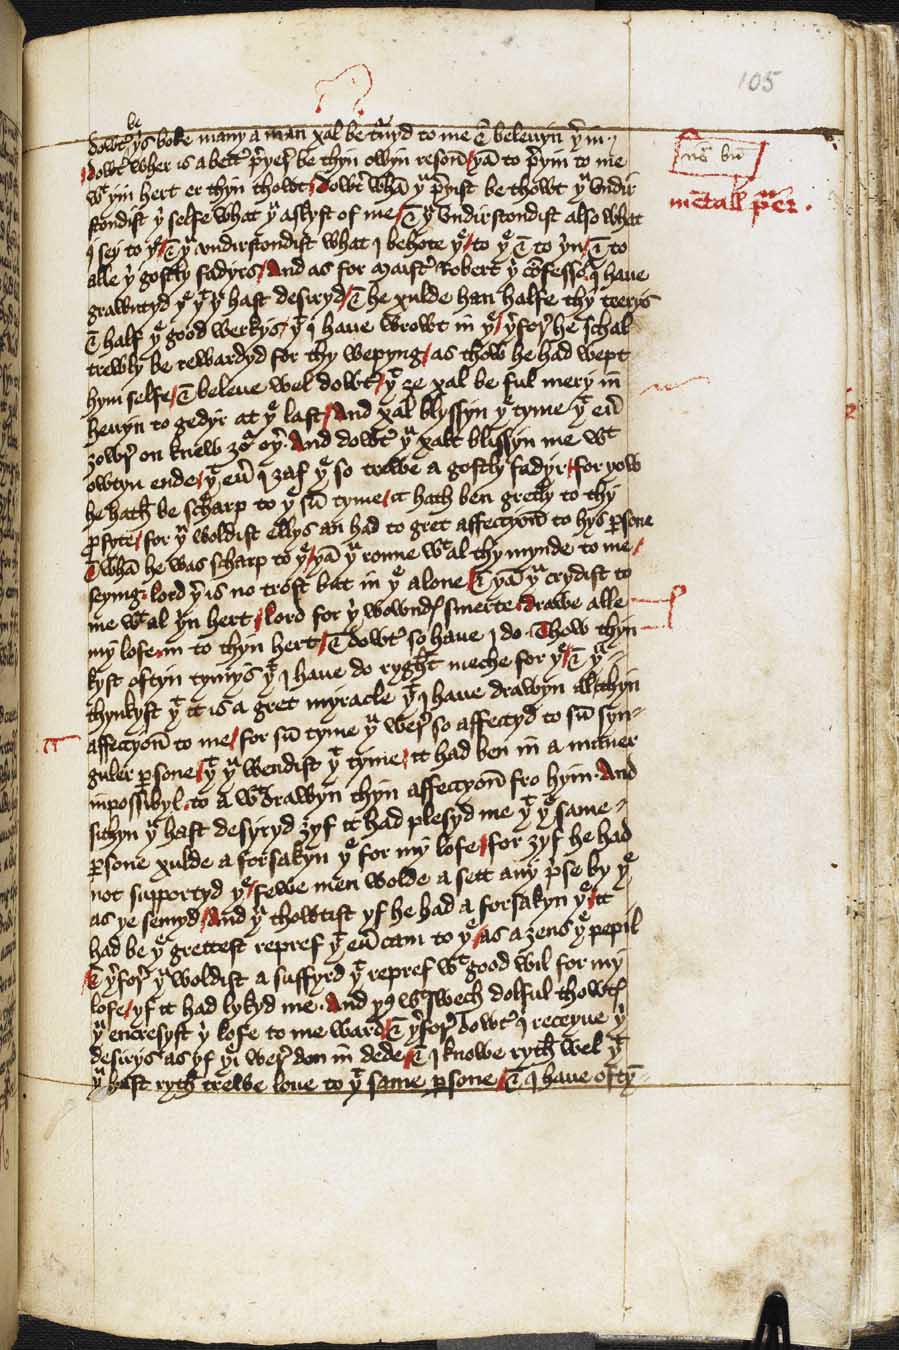 105
be
dowtʳ yˢ boke many a man xal be tʳnyd to me & beleuyn yʳ in
dowtʳ wher is a bettʳ pʳyeʳ be thyn owyn reson / yā to pʳyin to me
wᵗ yin hert er thyn thowt / dowtʳ whā yᵘ pʳyist be thowt yᵘ vndir
stondist yⁱ selfe what yᵘ askyst of me / & yᵘ vndirstondist also what
I sey to yᵉ / & yᵘ vndirstondist what I behote yᵉ / to yᵉ & to yⁱn / & to
alle yⁱ gostly fadyrs / And as for Maistʳ Robert yⁱ cōfessoʳ I haue
grawntyd yᵉ yᵗ yᵘ hast desiryd / & he xulde han halfe thy teerys
& half yᵉ good werkys / yᵗ I haue wrowt in yᵉ / yʳfoʳ he schal
trewly be rewardyd for thy wepyng / as thow he had wept
hym selfe / & beleue wel dowtʳ / yᵗ ze xal be ful mery in
heuyn to gedyr at yᵉ last / And xal blyssyn yᵉ tyme yᵗ euʳ
zowʳ on knew zᵉ oyʳ. And dowtʳ yᵘ xalt blissyn me wᵗ
owtyn ende / yᵗ euʳ I zaf yᵉ so trewe a gostly fadyr / for yow
he hath be scharp to yᵉ sū tyme / it hath ben gretly to thy
pʳfyte / for yᵘ woldist ellys an had to gret affectyon to hys psone
& whā he was scharp to yᵉ / yā yᵘ ronne wᵗ al thy mynde to me /
seying. lord yʳ is no trost but in yᵉ alone / & yā yᵘ crydist to
me wᵗ al yⁱn hert / lord for yⁱ wowndꝭ smerte drawe alle
my lofe in to thyn hert / & dowtʳ so haue I do. Thow thyn
kyst oftyn tymys yᵗ I haue do ryght meche for yᵉ / & yᵘ
thynkyst yᵗ it is a gret myracle yᵗ I haue drawyn al thyn
affectyon to me / for sū tyme yᵘ weʳ so affectyd to sū syn=
guler psone / yᵗ yᵘ wendist yᵗ tyme / it had ben in a maner
inpossibyl. to a wᵗdrawyn thyn affectyon fro hym. And
sithyn yᵘ hast desyryd zyf it had plesyd me yᵗ yᵉ same=
psone xulde a forsakyn yᵉ for my lofe / for zyf he had
not supportyd yᵉ / fewe men wolde a sett any pʳse by yᵉ
as ye semyd / And yᵘ thowtist yf he had a forsakyn yᵉ / it
had be yᵉ grettest repref yᵗ euʳ cam to yᵉ / as a zens yᵉ pepil
& yʳfoʳ yᵘ woldist a suffyrd yᵗ repref wᵗ good wil for my
lofe / yf it had lykyd me. And yꝰ wᵗ swech dolful thowtꝭ
yᵘ encresyst yⁱ lofe to me ward / & yʳfoʳ dowtʳ I receyue yⁱ
desirys as yf yᵉⁱ weʳ don in dede / & I knowe ryth wel yᵗ
yᵘ hast ryth trewe loue to yᵗ same psone / & I haue oftȳ=